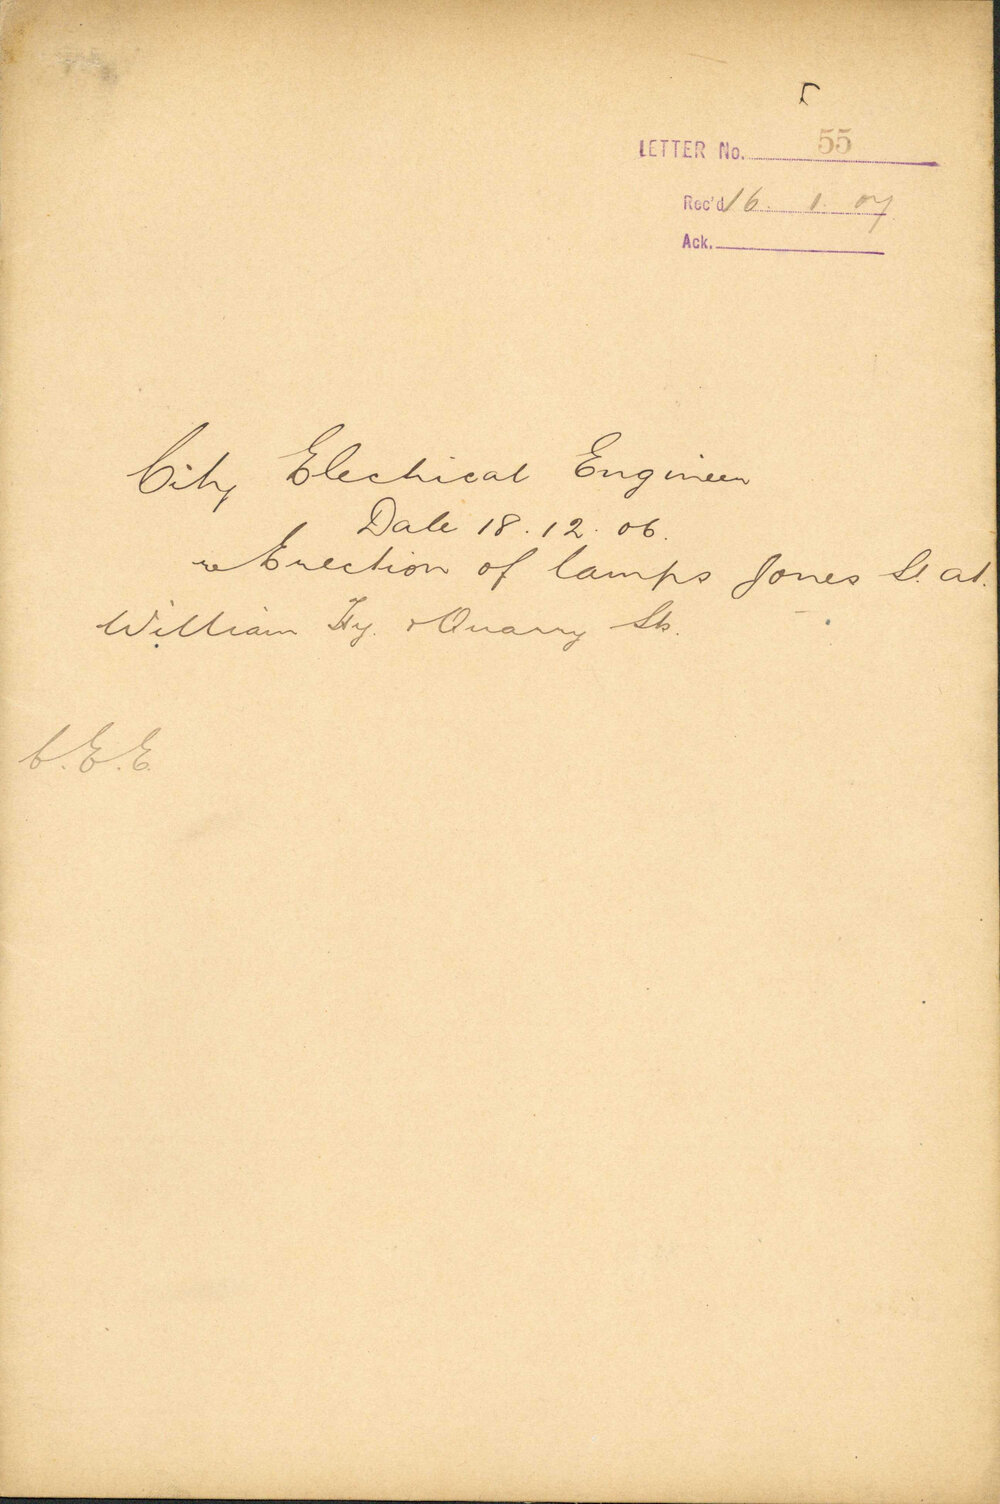 LETTER No. 55
Rec'd 16. 1. 07
Ack.
City Electrical Engineer
Date 18.12.06.
re Erection of lamps Jones St. at.
William Hy. & Quarry Sts.
C.E.E.